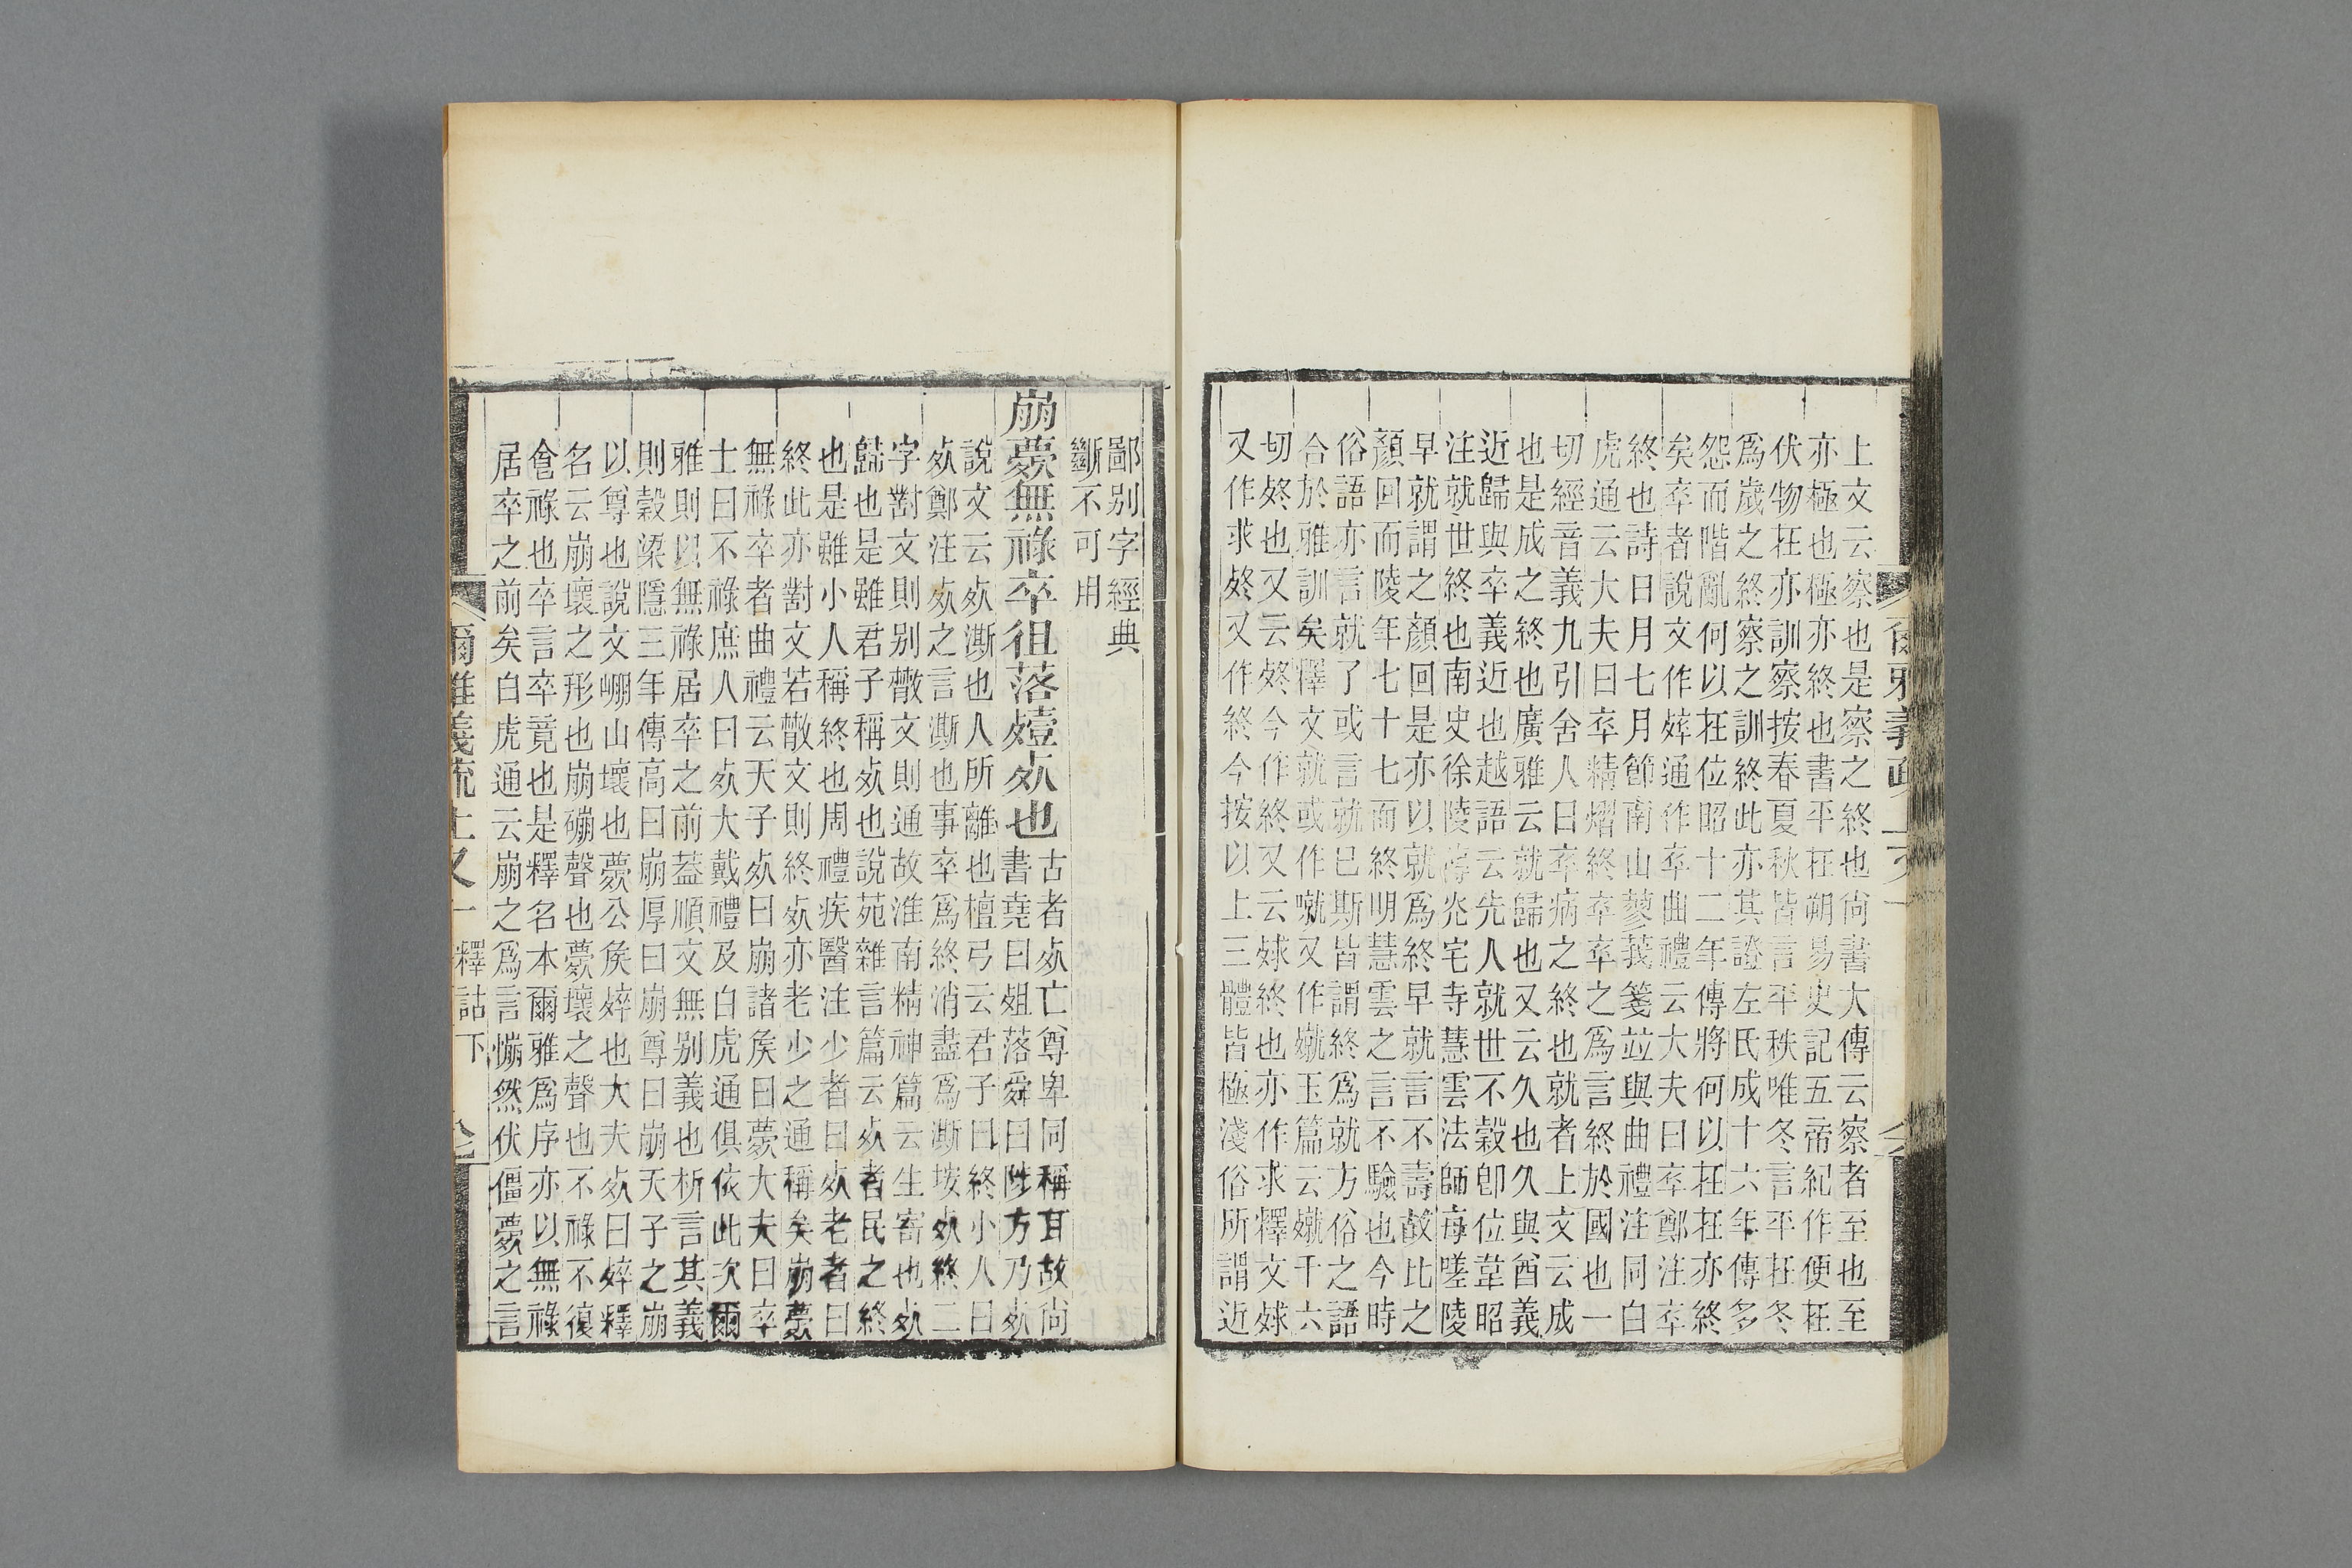 上文云察也是察之終也尙書大傳云察者至也至
亦極也極亦終也書平在朔易史記五帝紀作便在
伏物在亦訓察按春夏秋皆言平秩唯冬言平在冬
爲歲之終察之訓終此亦其證左氏成十六年傳多
怨而階亂何以在位昭十二年傳將何以在在亦終
矣卒者說文作𣨛通作卒曲禮云大夫曰卒鄭注卒
終也詩日月七月節南山蓼莪箋竝與曲禮注同白
虎通云大夫曰卒精熠終卒卒之爲言終於國也一
切經音義九引舍人曰卒病之終也就者上文云成
也是成之終也廣雅云就歸也又云久也久與酋義
近歸與卒義近也越語云先人就世不穀卽位韋昭
注就世終也南史徐陵傳 宅寺慧雲法師每嗟陵
早就謂之顏回是亦以就爲終早就言不壽故比之
顏回而陵年七十七而終明慧雲之言不驗也今時
俗語亦言就了或言就已斯皆謂終爲就方俗之語
合於雅訓矣釋文就或作噈又作殧玉篇云殧千六
切終也又云終今作終又云殏終也亦作求釋文殏
又作求終又作終今按以上三體皆極淺俗所謂近
爾雅義疏 上又一
鄙别字經典
斷不可用
崩薨無祿卒徂落殪死也古者死亡尊卑同稱耳故尙
書堯曰殂落舜曰陟方乃死
說文云死澌也人所離也檀弓云君子曰終小人曰
死鄭注死之言澌也事卒爲終消盡爲澌按死終二
字對文則别散文則通故淮南精神篇云生寄也死
歸也是雖君子稱死也說苑雜言篇云死者民之終
也是雖小人稱終也周禮疾醫注少者曰死老者曰
終此亦對文若散文則終死亦老少之通稱矣崩薨
無祿卒者曲禮云天子死曰崩諸矦曰薨大夫曰卒
士曰不祿庶人曰死大戴禮及白虎通俱依此次爾
雅則以無祿居卒之前葢順文無别義也析言其義
則穀梁隱三年傳高曰崩厚曰崩尊曰崩天子之崩
以尊也說文㟩山壞也薨公矦𣨛也大夫死曰𣨛釋
名云崩壞之形也崩硼聲也薨壞之聲也不祿不復
食祿也卒言卒竟也是釋名本爾雅爲序亦以無祿
居卒之前矣白虎通云崩之爲言㥊然伏僵薨之言
爾雅義疏 上又一 釋詁下